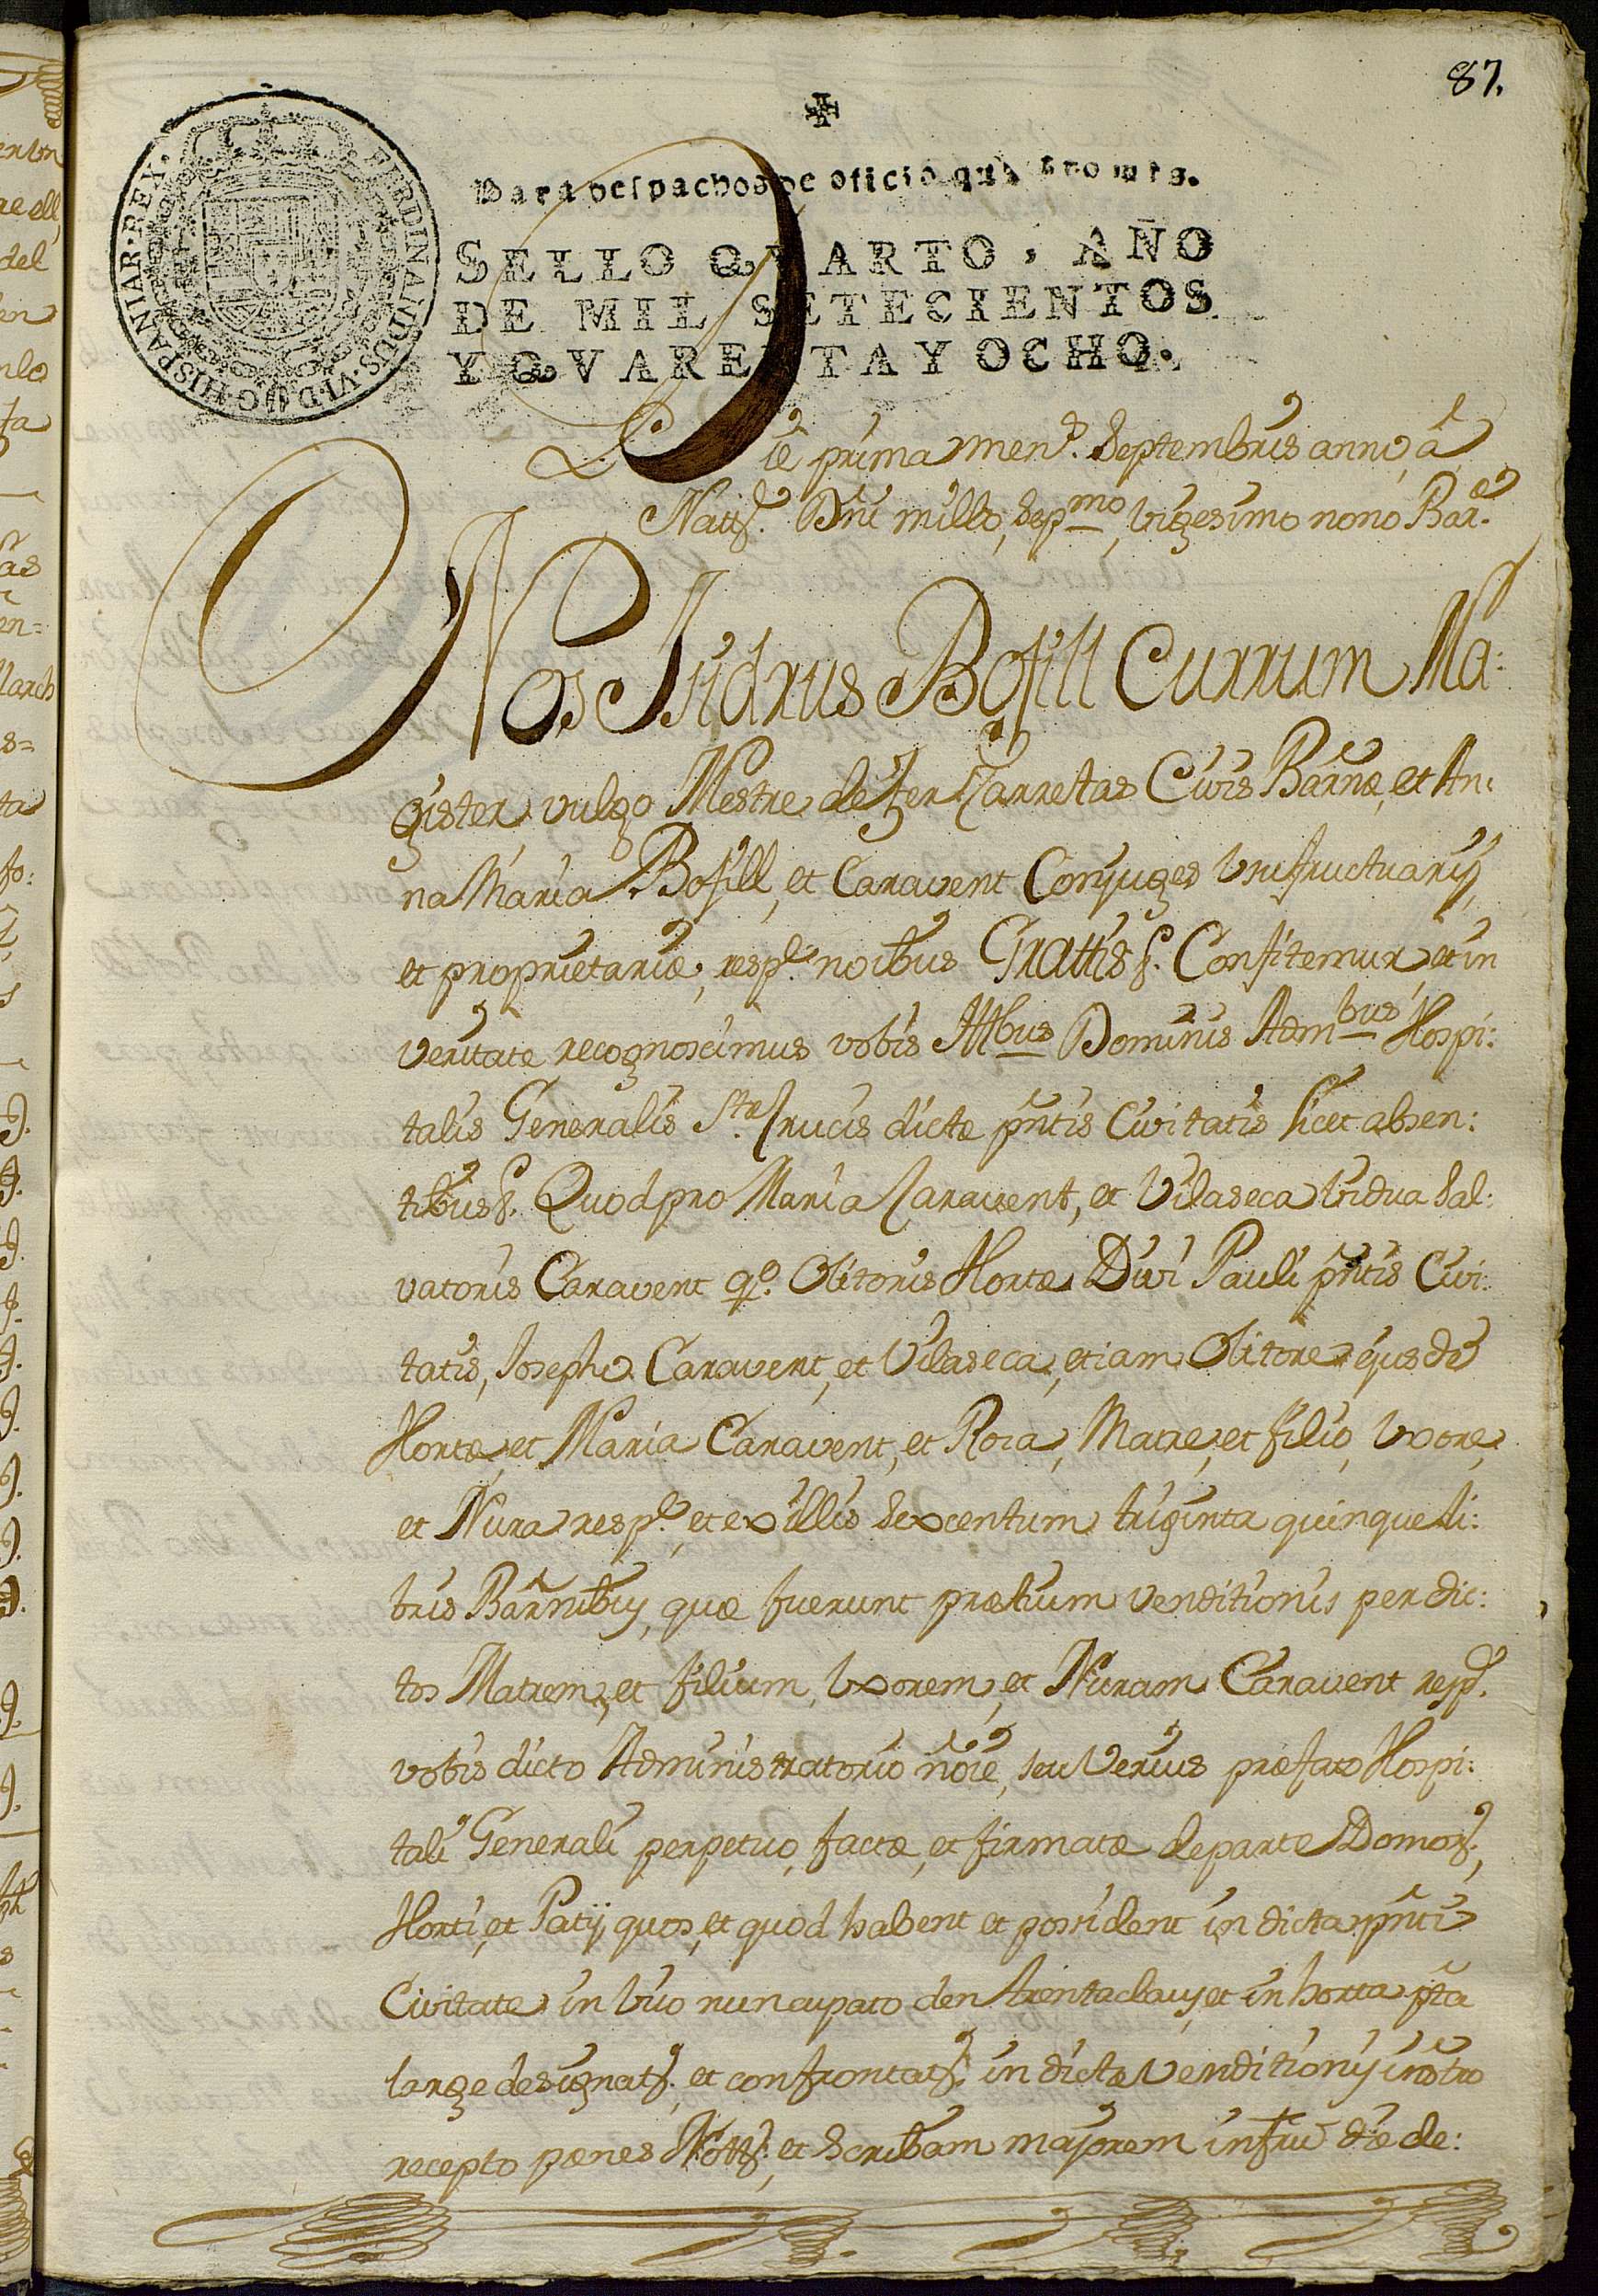 87.
FERDINANDUS·VI·D·G·HISPANIAR·REX·
Para despachos de oficio quatro mrs.
SELLO QVARTO, AÑO
DE MIL SETECIENTOS
Y QVARENTA Y OCHO.
Die prima mens. Septembris anno, â
Dñi millo, Sepmo, Vigesimo nono Bar.
Nos Isidrus Bofill Currum Ma:
gister, vulgo Mestre de fer Carretas Civis Barnæ, et An:
na Maria Bofill, et Caravent Conjuges Usufructuarij,
et proprietariæ, respe. noibus Grattis &. Confitemur, et in
veritate recognoscimus vobis Illbus Dominis Admbus Hospi:
talis Generalis Stæ Crucis dictæ pñtis Civitatis licet absen:
tibus &. Quod pro Maria Caravent, et Vilaseca Vidua Sal:
vatoris Caravent qo. Olitoris Hortæ Divi Pauli pñtis Civi:
tatis, Josepho Caravent, et Vilaseca, etiam Olitore ejusdẽ
Hortæ, et Maria Caravent, et Roca, Matre, et filio, Uxore,
et Nura respe. et ex illis Sexcentum triginta quinque li:
bris Barñnibus, quæ fuerunt prætium venditionis per dic:
tos Matrem, et filium, Uxorem, et Nuram Caravent respe.
vobis dicto Administratorio noĩe, seu Verius præfato Hospi:
tali Generali perpetuo, factæ, et firmatæ de parte Domor.,
Horti, et Patij quos, et quod habent et possident in dicta pñti
Civitate in Vico nuncupato den trentaclaus, et in horta pta
large designat. et confrontat. in dictæ Venditionis instro
recepto pænes Nott. et Scribam majorem infrũ die de: